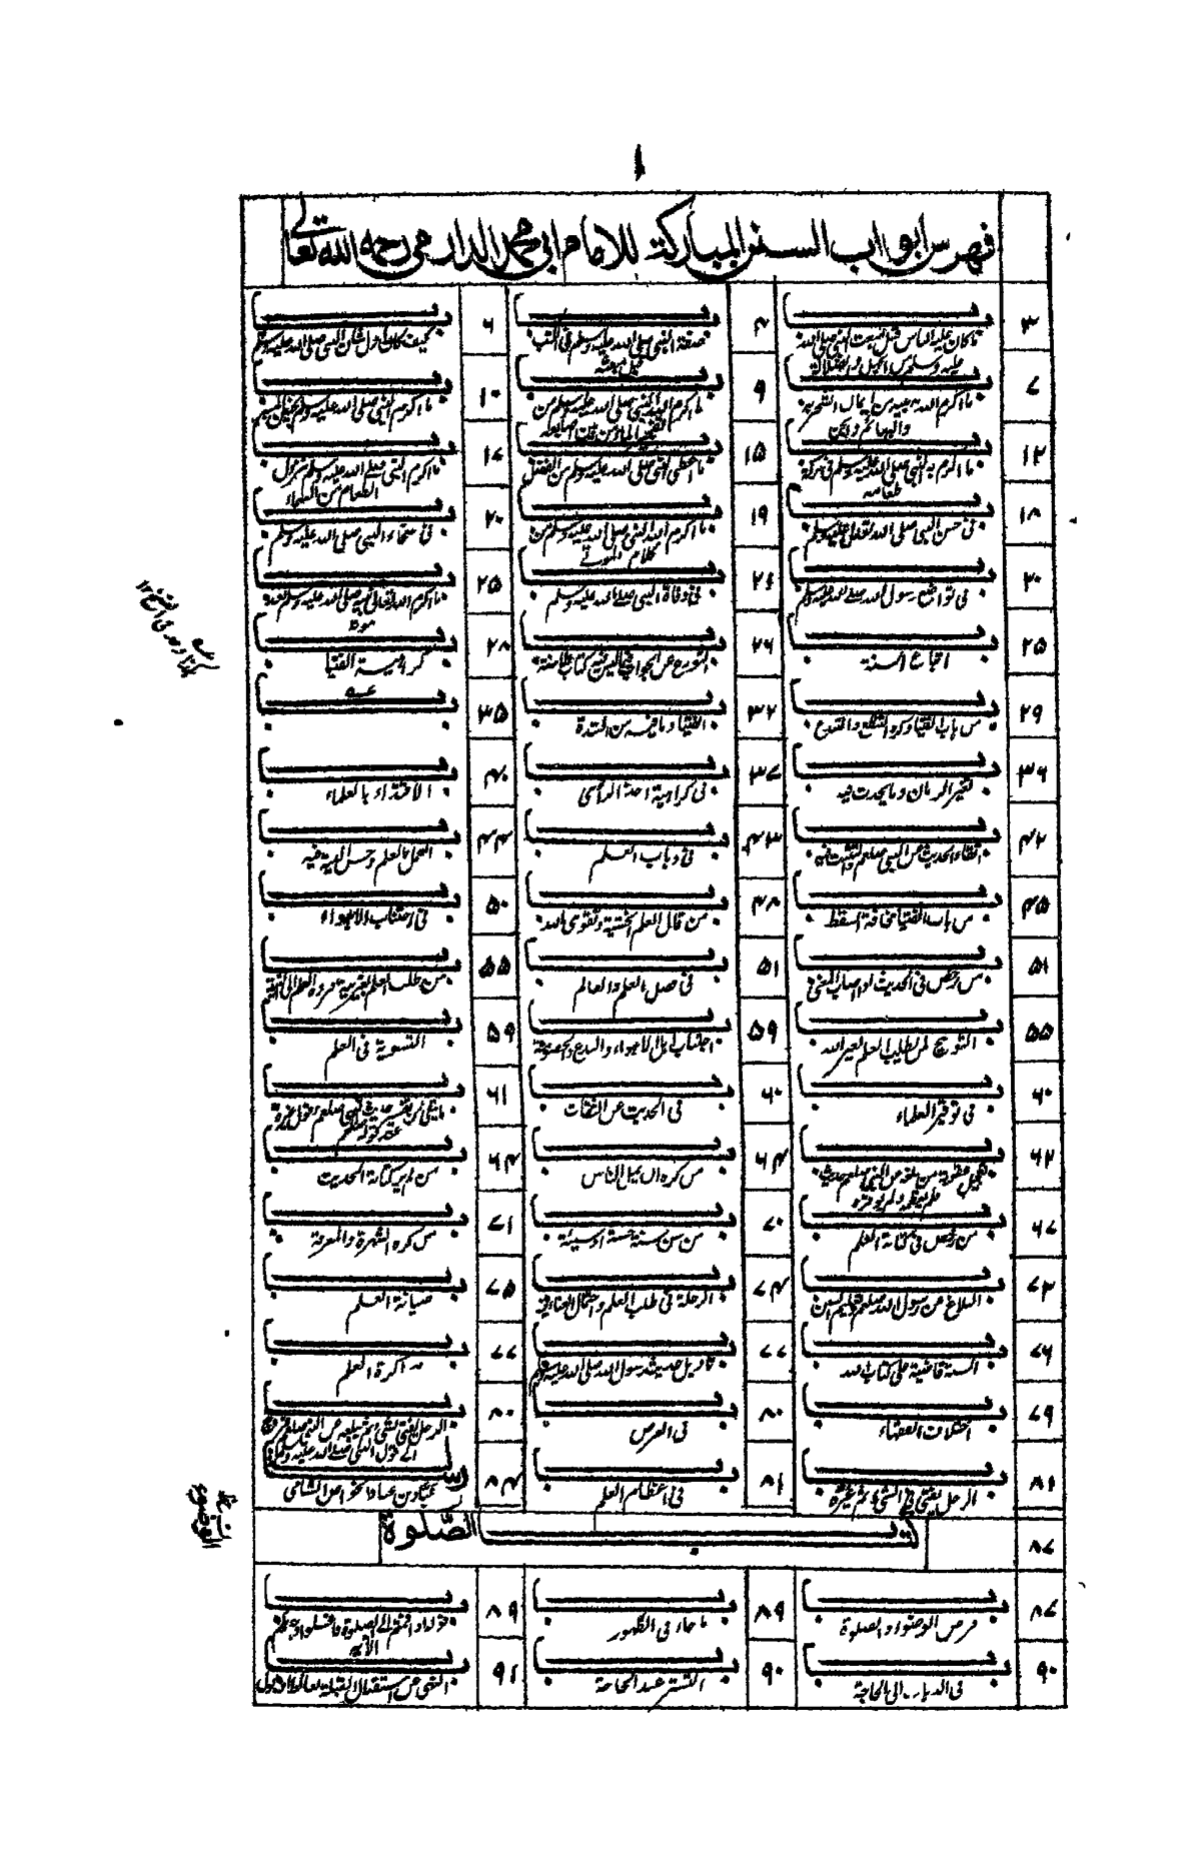 ١
فهرس ابواب السنن المباركة للامام ابي محمد الدارمي رحمه الله تعالى
٣ باب ما كان عليه الناس قبل مبعث النبي صلى الله عليه وسلم من الجهل والضلالة ٤ باب صفة النبي صلى الله عليه وسلم في الكتب قبل مبعثه ٦ باب كيف كان اول شان النبي صلى الله عليه وسلم
٧ باب ما اكرم الله به نبيه من ايمان الشجر به والبهائم والجن ٩ باب ما اكرم الله النبي صلى الله عليه وسلم من تفجير الماء من بين اصابعه ١٠ باب ما اكرم النبي صلى الله عليه وسلم بحنين المنبر
١٢ باب ما اكرم به النبي صلى الله عليه وسلم في بركة طعامه ١٥ باب ما اعطي النبي صلى الله عليه وسلم من الفضل ١٧ باب ما اكرم النبي صلى الله عليه وسلم بنزول الطعام من السماء
١٨ باب في حسن النبي صلى الله تعالى عليه وسلم ١٩ باب ما اكرم الله النبي صلى الله عليه وسلم من كلام الموتى ٢٠ باب في سخاء النبي صلى الله عليه وسلم
٢٠ باب في تواضع رسول الله صلى الله عليه وسلم ٢١ باب في وفاة النبي صلى الله عليه وسلم ٢٥ باب ما اكرم الله تعالى نبيه صلى الله عليه وسلم بعد موته
٢٥ باب اتباع السنة ٢٦ باب التورع عن الجواب فيما ليس فيه كتاب ولا سنة ٢٨ باب كراهية الفتيا
٢٩ باب من هاب الفتيا وكره التنطع والتبدع ٣٢ باب الفتيا وما فيه من الشدة ٣٥ باب
٣٦ باب تغير الزمان وما يحدث فيه ٣٧ باب في كراهية اخذ الراي ٤٠ باب الاقتداء بالعلماء
٤٢ باب اتقاء الحديث عن النبي صلعم والتثبت فيه ٤٣ باب في ذهاب العلم ٤٤ باب العمل بالعلم وحسن النية فيه
٤٥ باب من هاب الفتيا مخافة السقط ٤٨ باب من قال العلم الخشية وتقوى الله ٥٠ باب في اجتناب الاهواء
٥١ باب من رخص في الحديث اذا اصاب المعنى ٥١ باب في فضل العلم والعالم ٥٥ باب من طلب العلم بغير نية فرده العلم الى النية
٥٥ باب التوبيخ لمن يطلب العلم لغير الله ٥٩ باب اجتناب اهل الاهواء والبدع والخصومة ٥٩ باب التسوية في العلم
٦٠ باب في توقير العلماء ٦٠ باب في الحديث عن الثقات ٦١ باب ما يتقى من تفسير حديث النبي صلعم وقول غيره عند قوله صلعم
٦٢ باب تعجيل عقوبة من بلغه عن النبي صلعم حديث فلم يعظمه ولم يوقره ٦٤ باب من كره ان يمل الناس ٦٤ باب من لم ير كتابة الحديث
٦٧ باب من رخص في كتابة العلم ٧٠ باب من سن سنة حسنة او سيئة ٧١ باب من كره الشهرة والمعرفة
٧٣ باب البلاغ عن رسول الله صلعم وتعليم السنن ٧٤ باب الرحلة في طلب العلم واحتمال العناء فيه ٧٥ باب صيانة العلم
٧٦ باب السنة قاضية على كتاب الله ٧٧ باب تاويل حديث رسول الله صلى الله عليه وسلم ٧٧ باب مذاكرة العلم
٧٩ باب اختلاف الفقهاء ٨٠ باب في العرض ٨٠ باب الرجل يفتي بشيء ثم يبلغه عن النبي صلعم فيرجع الى قول النبي صلى الله عليه وسلم
٨١ باب الرجل يفتي في الشيء ثم غيره ٨١ باب في اعظام العلم ٨٤ رسالة عباد بن عباد الخواص الشامي
٨٧ كتاب الصلوة
٨٧ باب فرض الوضوء والصلوة ٨٩ باب ما جاء في الطهور ٨٩ باب قوله اذا قمتم الى الصلوة فاغسلوا وجوهكم الآية
٩٠ باب في الذهاب الى الحاجة ٩٠ باب التستر عند الحاجة ٩١ باب النهي عن استقبال القبلة بغائط او بول